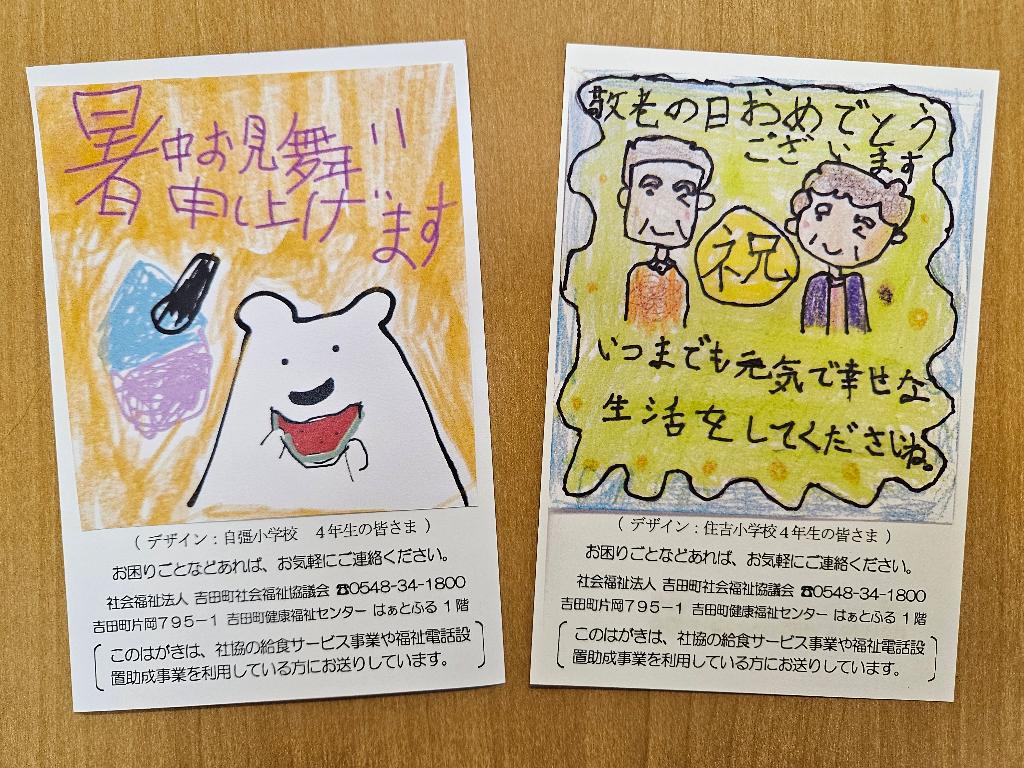 暑中お見舞い
申し上げます
(デザイン:自彊小学校 4年生の皆さま)
お困りごとなどあれば、お気軽にご連絡ください。
社会福祉法人 吉田町社会福祉協議会 ☎0548-34-1800
吉田町片岡795-1 吉田町健康福祉センター はぁとふる 1階
このはがきは、社協の給食サービス事業や福祉電話設
置助成事業を利用している方にお送りしています。
敬老の日おめでとう
ございます
祝
いつまでも元気で幸せな
生活をしてくださいね。
(デザイン:住吉小学校4年生の皆さま)
お困りごとなどあれば、お気軽にご連絡ください。
社会福祉法人 吉田町社会福祉協議会 ☎0548-34-1800
吉田町片岡795-1 吉田町健康福祉センター はぁとふる 1階
このはがきは、社協の給食サービス事業や福祉電話設
置助成事業を利用している方にお送りしています。